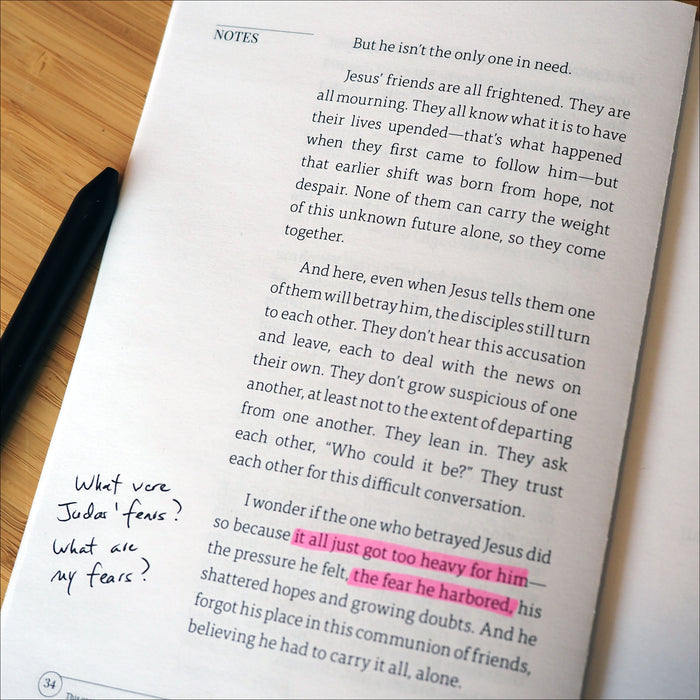 NOTES
But he isn't the only one in need.
Jesus' friends are all frightened. They are
all mourning. They all know what it is to have
their lives upended—that's what happened
when they first came to follow him—but
that earlier shift was born from hope, not
despair. None of them can carry the weight
of this unknown future alone, so they come
together.
And here, even when Jesus tells them one
of them will betray him, the disciples still turn
to each other. They don't hear this accusation
and leave, each to deal with the news on
their own. They don't grow suspicious of one
another, at least not to the extent of departing
from one another. They lean in. They ask
each other, “Who could it be?” They trust
each other for this difficult conversation.
I wonder if the one who betrayed Jesus did
so because it all just got too heavy for him—
the pressure he felt, the fear he harbored, his
shattered hopes and growing doubts. And he
forgot his place in this communion of friends,
believing he had to carry it all, alone.
What were
Judas' fears?
What are
my fears?
34